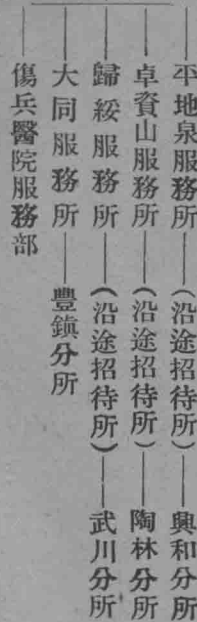 平地泉服務所——(沿途招待所)——興和分所
卓資山服務所——(沿途招待所)——陶林分所
歸綏服務所——(沿途招待所)——武川分所
大同服務所——豐鎮分所
傷兵醫院服務部